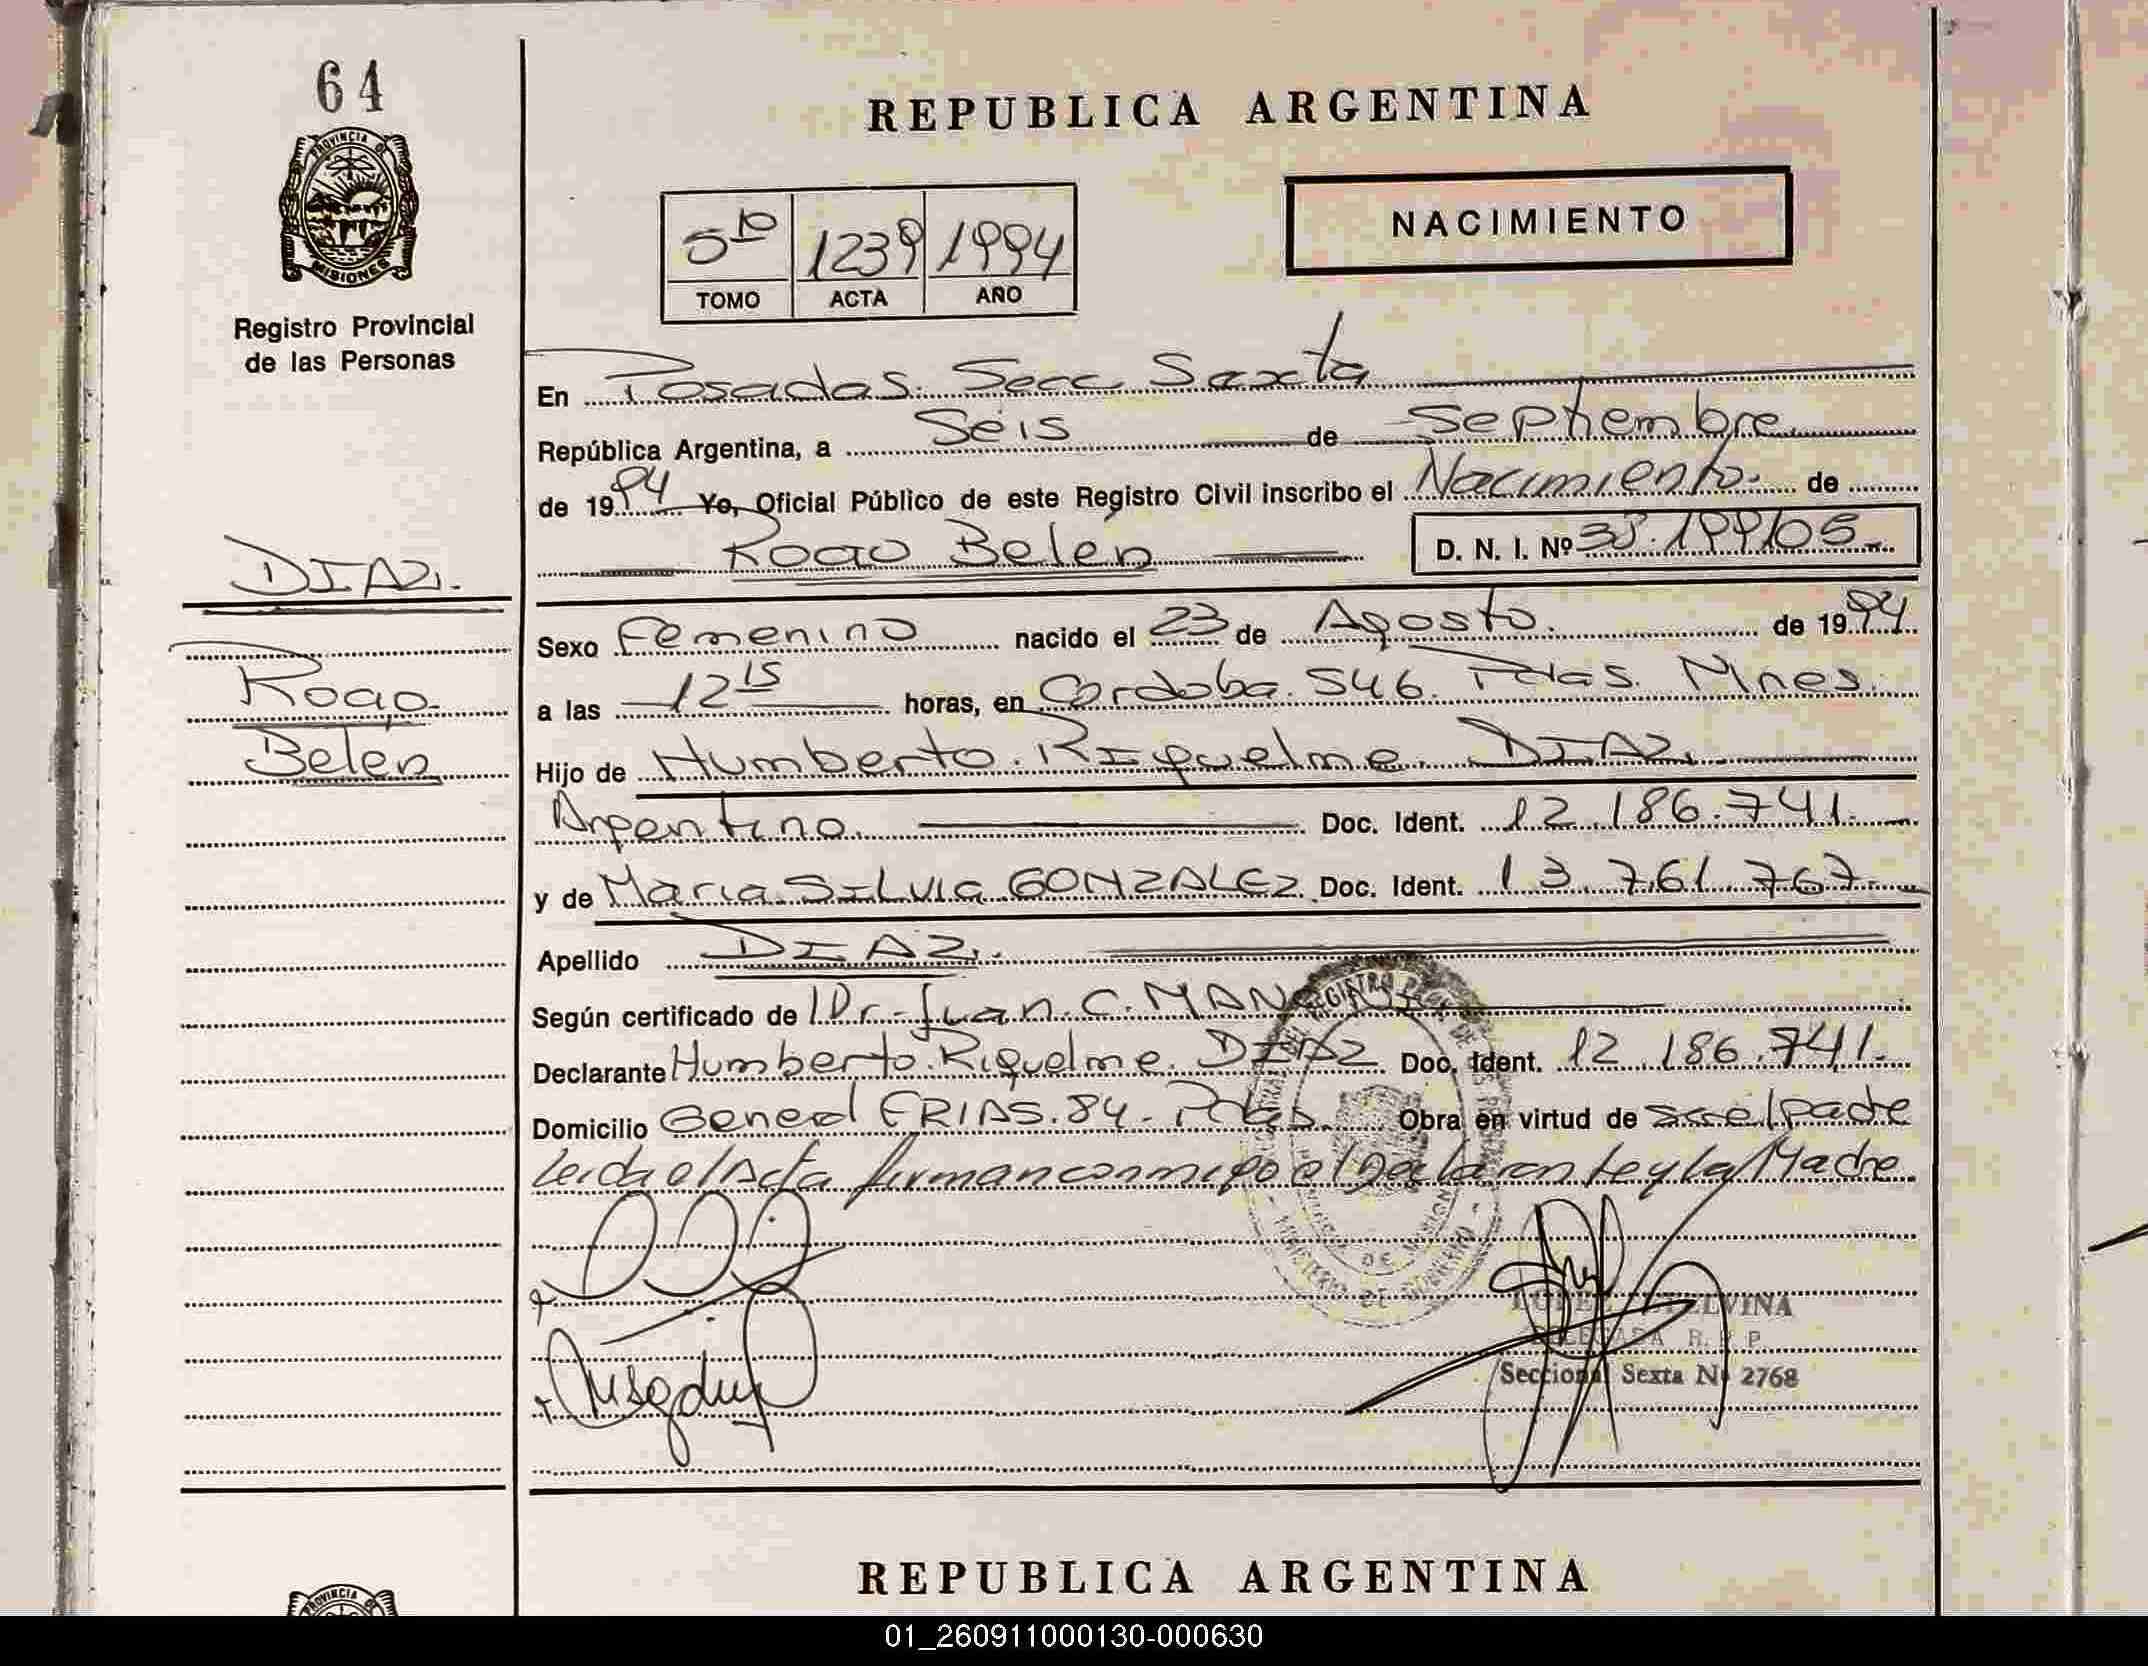 64
PROVINCIA DE
MISIONES
Registro Provincial
de las Personas
REPUBLICA ARGENTINA
NACIMIENTO
5to 1239 1994
TOMO ACTA AÑO
En Posadas. Secc Sexta
República Argentina, a Seis de Septiembre
de 1994 Yo, Oficial Público de este Registro Civil inscribo el Nacimiento. de
Rocio Belén D. N. I. Nº
DIAZ.
Rocio
Belén
Sexo Femenino nacido el 23 de Agosto. de 1994
a las 12 15 horas, en Cordoba. 546. Pdas. Mnes.
Hijo de Humberto. Riquelme. DIAZ.
Argentino. Doc. Ident. 12.186.741.
y de Maria Silvia GONZALEZ Doc. Ident. 13.761.767.
Apellido DIAZ.
Según certificado de Dr. Juan. C.
Declarante Humberto. Riquelme. DIAZ Doc. Ident. 12.186.741.
Domicilio General FRIAS. 84. Pdas. Obra en virtud de ser el padre
Leida el Acta firman conmigo el Declarante y la Madre
DELEGADA R. P. P.
Seccional Sexta Nº 2768
REPUBLICA ARGENTINA
PROVINCIA DE
01_260911000130-000630